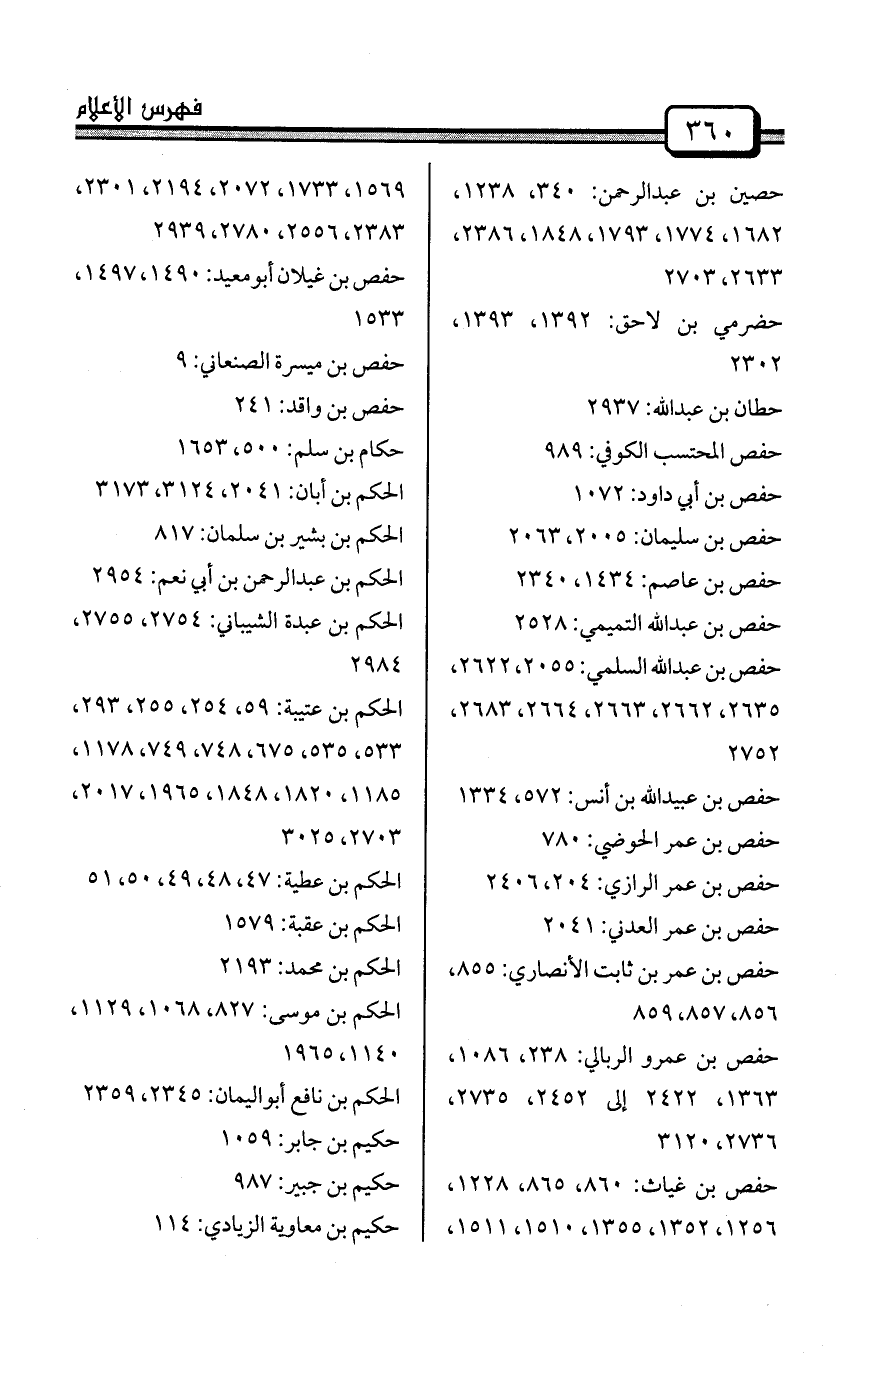 فهرس الأعلام
٣٦٠
حصين بن عبدالرحمن: ٣٤٠، ١٢٣٨،
١٦٨٢، ١٧٧٤، ١٧٩٣، ١٨٤٨، ٢٣٨٦،
٢٦٣٣، ٢٧٠٣
حضرمي بن لاحق: ١٣٩٢، ١٣٩٣،
٢٣٠٢
حطان بن عبدالله: ٢٩٣٧
حفص المحتسب الكوفي: ٩٨٩
حفص بن أبي داود: ١٠٧٢
حفص بن سليمان: ٢٠٠٥، ٢٠٦٣
حفص بن عاصم: ١٤٣٤، ٢٣٤٠
حفص بن عبدالله التميمي: ٢٥٢٨
حفص بن عبدالله السلمي: ٢٠٥٥، ٢٦٢٢،
٢٦٣٥، ٢٦٦٢، ٢٦٦٣، ٢٦٦٤، ٢٦٨٣،
٢٧٥٢
حفص بن عبيدالله بن أنس: ٥٧٢، ١٣٣٤
حفص بن عمر الحوضي: ٧٨٠
حفص بن عمر الرازي: ٢٠٤، ٢٤٠٦
حفص بن عمر العدني: ٢٠٤١
حفص بن عمر بن ثابت الأنصاري: ٨٥٥،
٨٥٦، ٨٥٧، ٨٥٩
حفص بن عمرو الربالي: ٢٣٨، ١٠٨٦،
١٣٦٣، ٢٤٢٢ إلى ٢٤٥٢، ٢٧٣٥،
٢٧٣٦، ٣١٢٠
حفص بن غياث: ٨٦٠، ٨٦٥، ١٢٢٨،
١٢٥٦، ١٣٥٢، ١٣٥٥، ١٥١٠، ١٥١١،
١٥٦٩، ١٧٣٣، ٢٠٧٢، ٢١٩٤، ٢٣٠١،
٢٣٨٣، ٢٥٥٦، ٢٧٨٠، ٢٩٣٩
حفص بن غيلان أبو معيد: ١٤٩٠، ١٤٩٧،
١٥٣٣
حفص بن ميسرة الصنعاني: ٩
حفص بن واقد: ٢٤١
حكام بن سلم: ٥٠٠، ١٦٥٣
الحكم بن أبان: ٢٠٤١، ٣١٢٤، ٣١٧٣
الحكم بن بشير بن سلمان: ٨١٧
الحكم بن عبدالرحمن بن أبي نعم: ٢٩٥٤
الحكم بن عبدة الشيباني: ٢٧٥٤، ٢٧٥٥،
٢٩٨٤
الحكم بن عتيبة: ٥٩، ٢٥٤، ٢٥٥، ٢٩٣،
٥٣٣، ٥٣٥، ٦٧٥، ٧٤٨، ٧٤٩، ١١٧٨،
١١٨٥، ١٨٢٠، ١٨٤٨، ١٩٦٥، ٢٠١٧،
٢٧٠٣، ٣٠٢٥
الحكم بن عطية: ٤٧، ٤٨، ٤٩، ٥٠، ٥١
الحكم بن عقبة: ١٥٧٩
الحكم بن محمد: ٢١٩٣
الحكم بن موسى: ٨٢٧، ١٠٦٨، ١١٢٩،
١١٤٠، ١٩٦٥
الحكم بن نافع أبو اليمان: ٢٣٤٥، ٢٣٥٩
حكيم بن جابر: ١٠٥٩
حكيم بن جبير: ٩٨٧
حكيم بن معاوية الزيادي: ١١٤